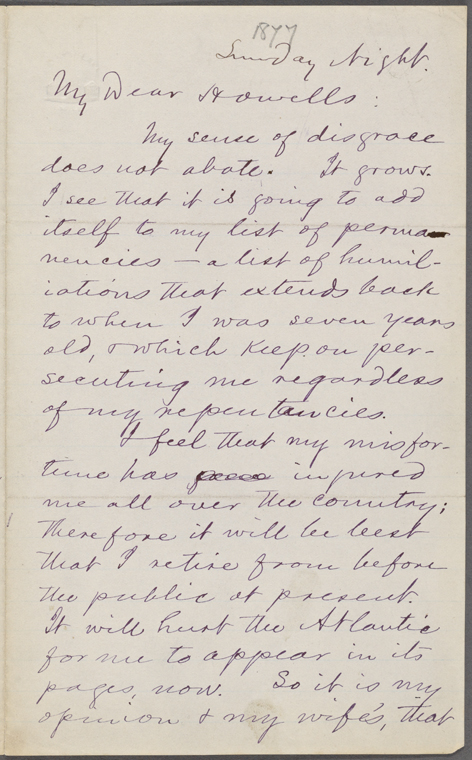 1877
Sunday Night.
My Dear Howells:
My sense of disgrace
does not abate. It grows.
I see that it is going to add
itself to my list of perma-
nencies — a list of humil-
iations that extends back
to when I was seven years
old, & which keep on per-
secuting me regardless
of my repentancies.
I feel that my misfor-
tune has injured
me all over the country;
therefore it will be best
that I retire from before
the public at present.
It will hurt the Atlantic
for me to appear in its
pages, now. So it is my
opinion & my wife's, that